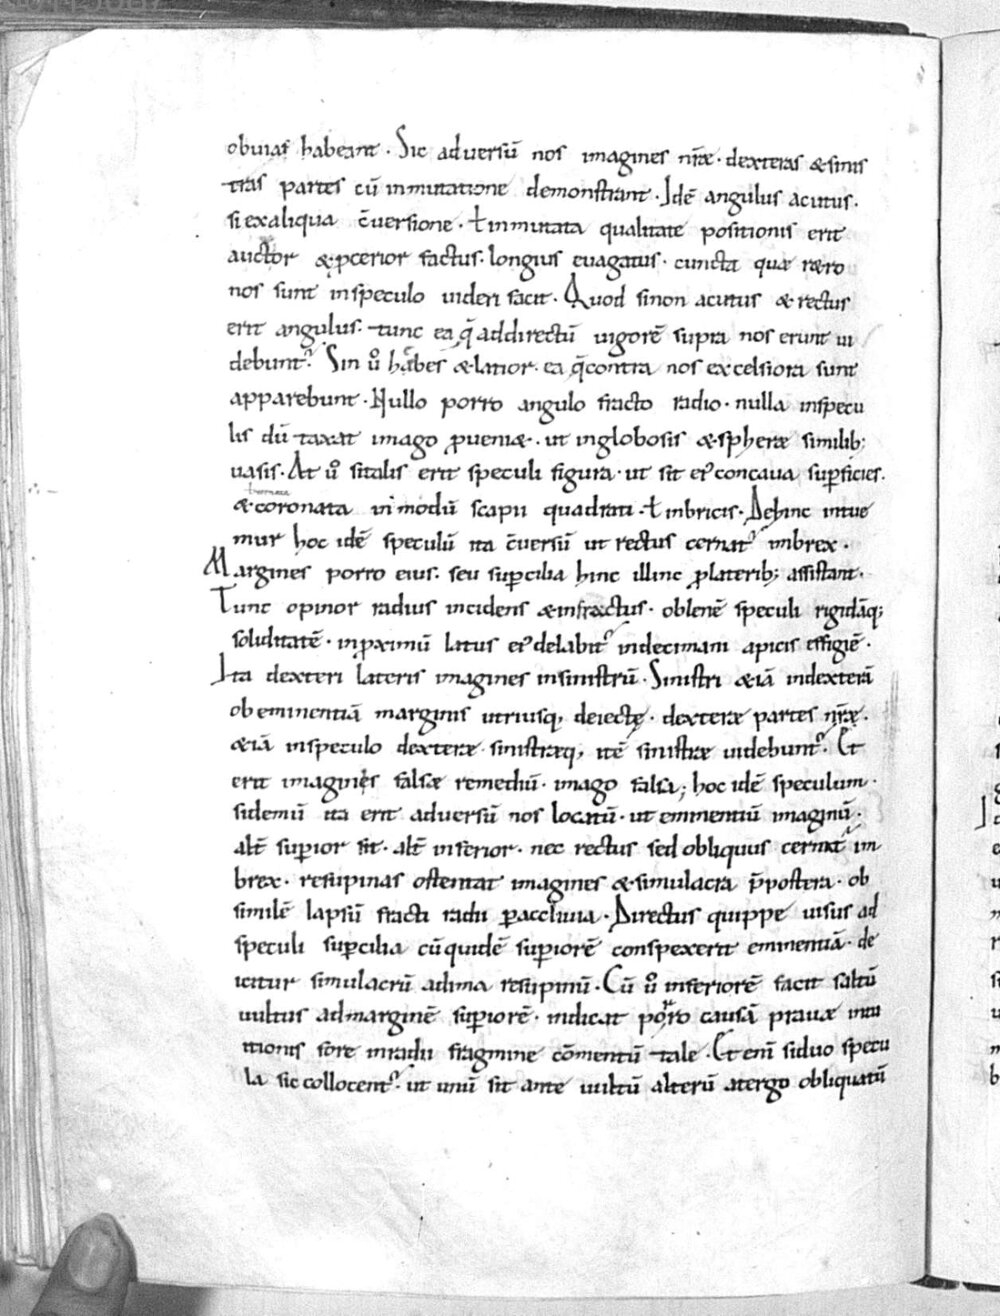 obuias habeant · Sic aduersū nos imagines nr̄æ · dexteras & sinis
tras partes cū inmutatione demonstrant · Idē angulus acutus ·
si exaliqua c̄uersione · ł inmutata qualitate positionis erit
auctor &pcerior factus · longius euagatus · cuncta quæ r&ro
nos sunt inspeculo uideri facit · Quod sinon acutus & rectus
erit angulus · tunc ea q̄ addirectū uigorē supra nos erunt ui
debunt᷑ · Sin ū hābes & latior · ea q̄ contra nos excelsiora sunt
apparebunt · Nullo porro angulo fracto radio · nulla inspecu
lis dū taxat imago ꝓueni& · ut inglobosis & spheræ similib;
uasis · At ū sitalis erit speculi figura · ut sit ei᷑ concaua sup̄ficies ·
& coronata in modū scapii quadrati · ł imbricis · Dehinc intue
mur hoc idē speculū ita c̄uersū ut rectus cernat᷑ imbrex ·
Margines porro eius · seu sup̄cilia hinc illinc ꝓ laterib; assistant ·
Tunc opinor radius incidens & infractus · oblenē speculi rigidāq;
soliditatē · inproximū latus ei᷑ delabit᷑ indecimani apicis effigiē ·
Ita dexteri lateris imagines insinistrū · Sinistri &iā indexterā
ob eminentiā marginis utriusq, deiectę · dexteræ partes nr̄ę ·
&iā inspeculo dexteræ · sinistræq, itē sinistræ uidebunt᷑ · Et
erit imagines falsæ remediū · imago falsa; hoc idē speculum ·
sidemū ita erit aduersū nos locatū · ut eminentiū imaginū ·
alt̄ supior sit · alt̄ inferior · nec rectus sed obliquus cernat᷑ im
brex · resupinas ostentat imagines & simulacra p̄postera · ob
similē lapsū fracti radii p accliuia · Directus quippe uisus ad
speculi sup̄cilia cū quidē supiorē conspexerit eminentiā · de
icitur simulacrū adima resupinū · Cū ū inferiorē facit saltū
uultus admarginē supiorē · indicat porro causā prauæ intu
itionis fore inradii fragmine cōmentū tale · Et eni᷑ siduo specu
la sic collocent᷑ · ut unū sit ante uultū alterū atergo obliquatū